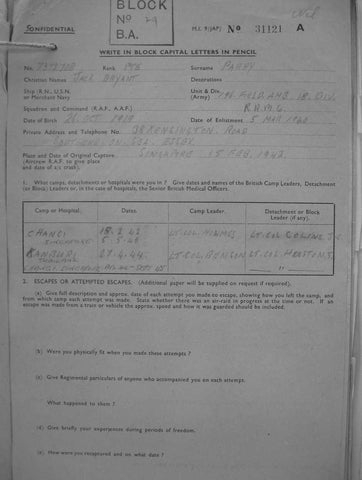 BLOCK
Nº 29
B.A.
CONFIDENTIAL
M.I. 9/JAP/ Nº 31121 A
WRITE IN BLOCK CAPITAL LETTERS IN PENCIL
No. Rank PTE Surname
Christian Names JACK BRYANT Decorations
Ship (R.N., U.S.N. or Merchant Navy Unit & Div. (Army) 196 FIELD AMB. 18 DIV.
R.A.M.C.
Squadron and Command (R.A.F., A.A.F.)
Date of Birth 26 OCT 1918 Date of Enlistment 5 MAR 1940
Private Address and Telephone No. 38 KENSINGTON ROAD
SOUTHEND-ON-SEA ESSEX
Place and Date of Original Capture SINGAPORE 15 FEB. 1942.
(Aircrew R.A.F. to give place and date of a/c crash).
1. What camps, detachments or hospitals were you in? Give dates and names of the British Camp Leaders, Detachment (or Block) Leaders or, in case of hospitals, the Senior British Medical Officers.
Camp or Hospital. Dates. Camp Leader. Detachment or Block Leader (if any).
CHANGI 15.2.42 LT-COL HOLMES
SINGAPORE 5.5.43
KANBURI 27.4.44 LT-COL
THAILAND
2. ESCAPES OR ATTEMPTED ESCAPES. (Additional paper will be supplied on request if required).
(a) Give full description and approx. date of each attempt you made to escape, showing how you left the camp, and from which camp each attempt was made. State whether there was an air-raid in progress at the time or not. If an escape was made from a train or vehicle the approx. speed and how it was guarded should be included.
(b) Were you physically fit when you made these attempts?
(c) Give Regimental particulars of anyone who accompanied you on each attempt.
What happened to them?
(d) Give briefly your experiences during periods of freedom.
(e) How were you recaptured and on what date?